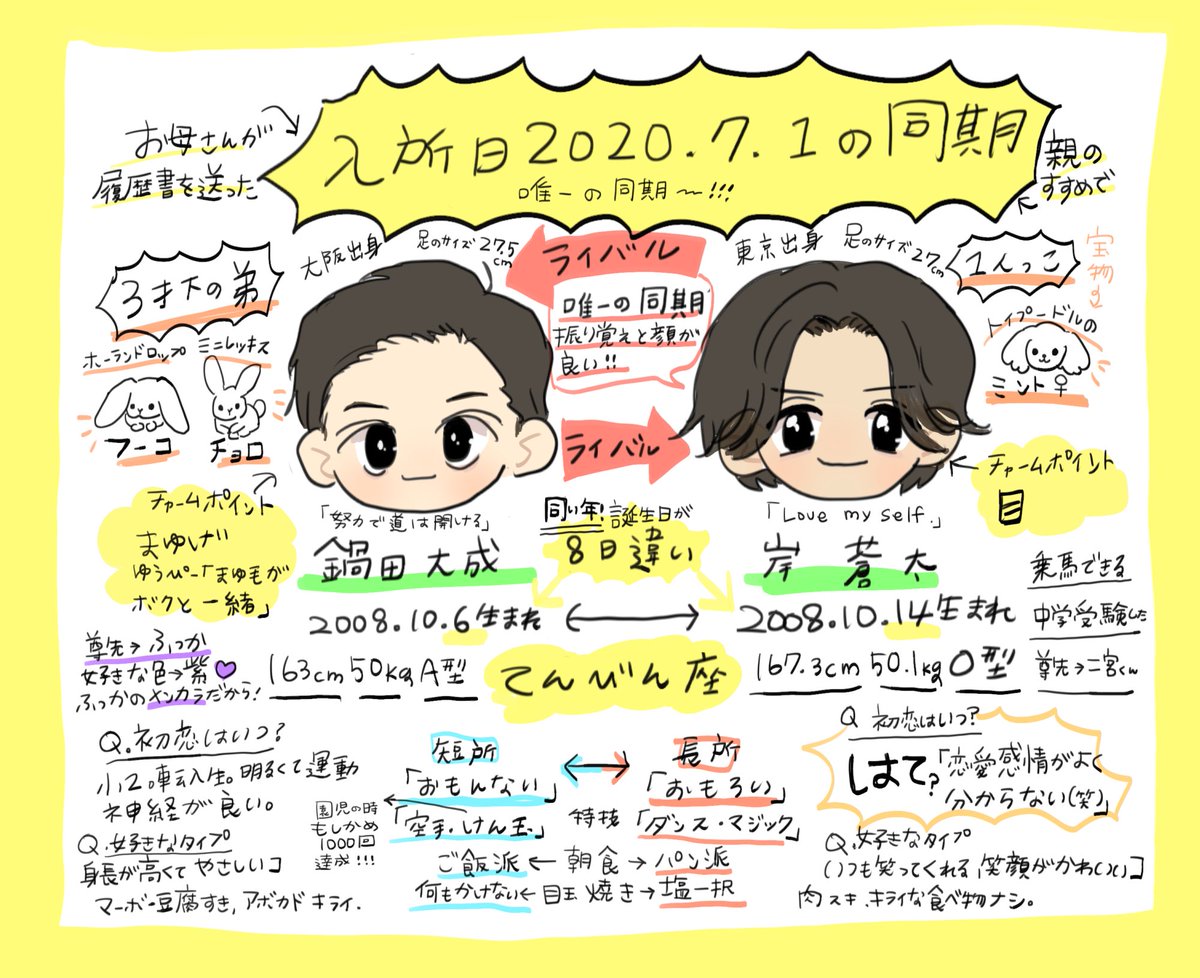 入所日2020.7.1の同期
唯一の同期〜!!!
お母さんが
履歴書を送った
親の
すすめで
大阪出身
足のサイズ27.5
cm
3才下の弟
ホーランドロップ
ミニレッキス
フーコ
チョロ
チャームポイント
まゆげ
ゆうぴー「まゆ毛が
ボクと一緒」
ライバル
唯一の同期
振り覚えと顔が
良い!!
ライバル
東京出身
足のサイズ27cm
1人っこ
宝物は
トイプードルの
ミント♀
チャームポイント
目
「努力で道は開ける」
鍋田大成
2008.10.6生まれ
163cm 50kg A型
同い年!誕生日が
8日違い
てんびん座
「Love my self.」
岸 蒼太
2008.10.14生まれ
167.3cm 50.1kg O型
乗馬できる
中学受験した
尊先→二宮くん
尊先→ふっか
好きな色→紫
ふっかのメンカラだから!
Q.初恋はいつ?
小2。転入生。明るくて運動
神経が良い。
Q.好きなタイプ
身長が高くてやさしい
マーボー豆腐すき,アボカドキライ.
短所
「おもんない」
長所
「おもろい」
「空手・けん玉」
特技
「ダンス・マジック」
園児の時
もしかめ
1000回
達成!!!
ご飯派←朝食→パン派
何もかけない←目玉焼き→塩一択
Q 初恋はいつ?
はて?「恋愛感情がよく
分からない(笑)」
Q.好きなタイプ
いつも笑ってくれる,笑顔がかわいい
肉スキ,キライな食べ物ナシ。